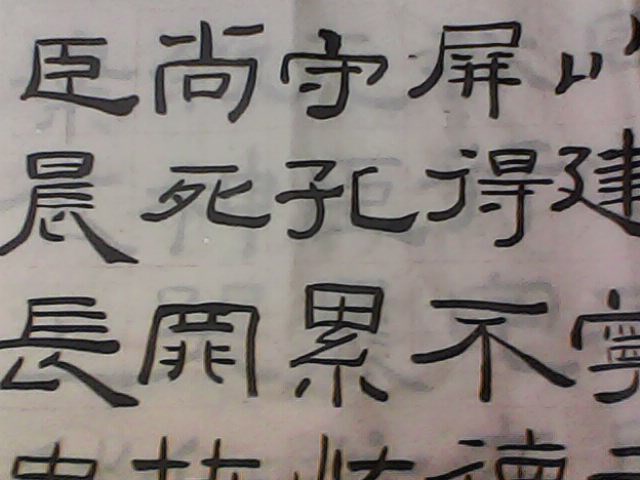 建寧
屏得不德
守孔累
尚死罪
臣晨長